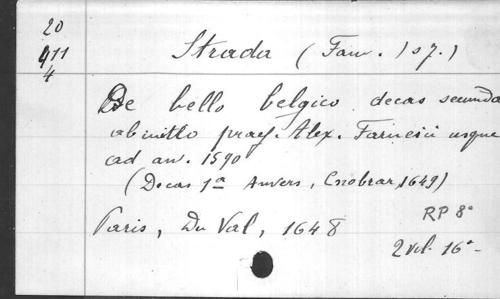 20
911
4
Strada (Fam.) s j.)
De bello belgico decas secunda
ab initio praef. Alex. Farnesii usque
ad an. 1590
(Decas 1a Anvers, Cnobrar, 1649)
Paris, Du Val, 1648
RP 8°
2 vol. 16°